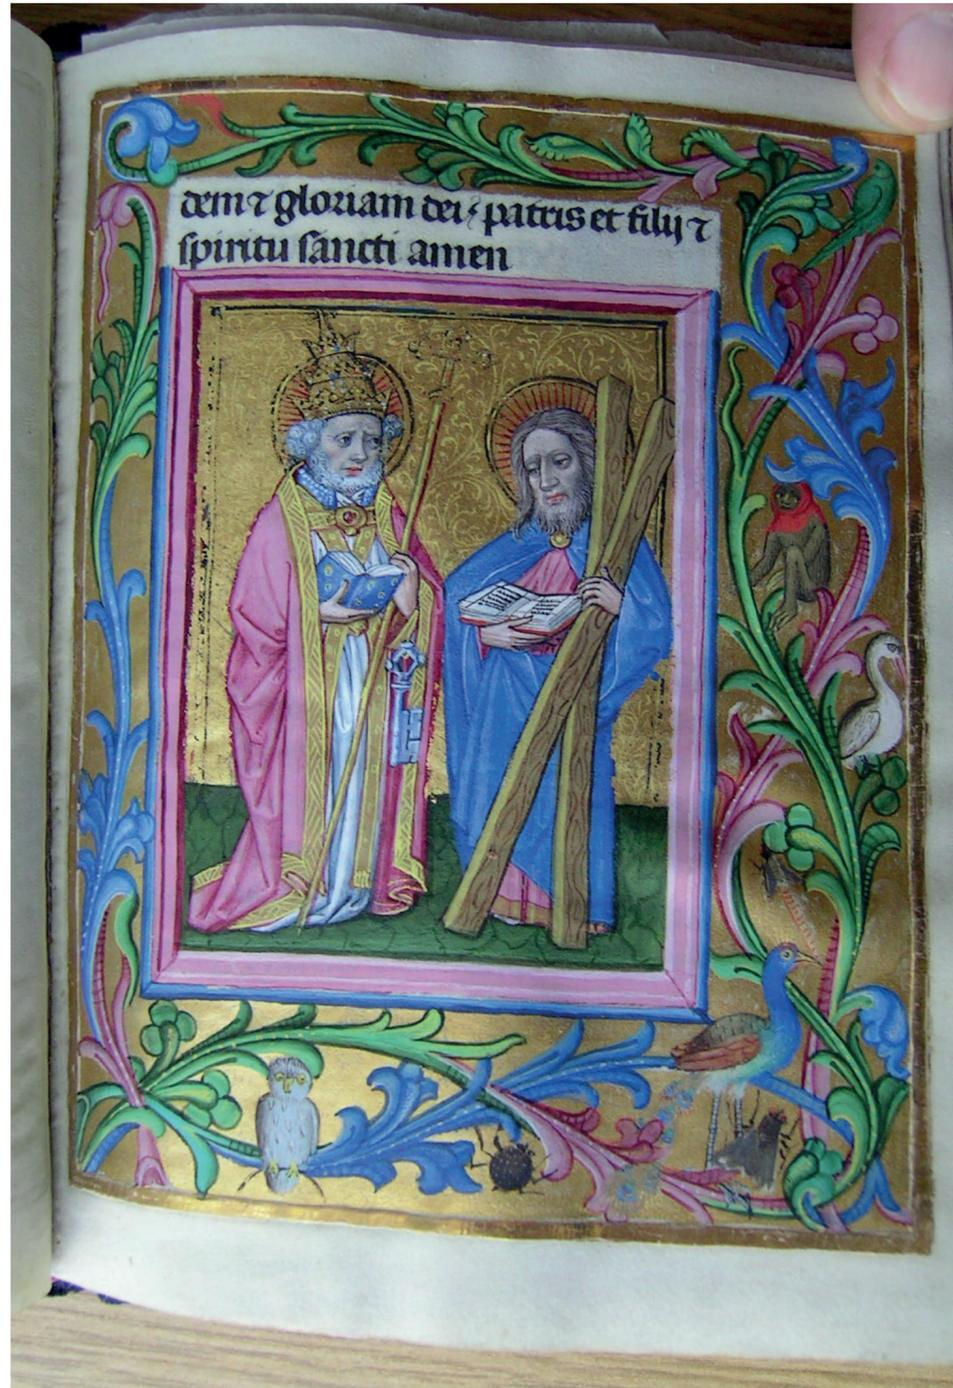 dem ⁊ gloriam dei patris et filij ⁊
spiritu sancti amen